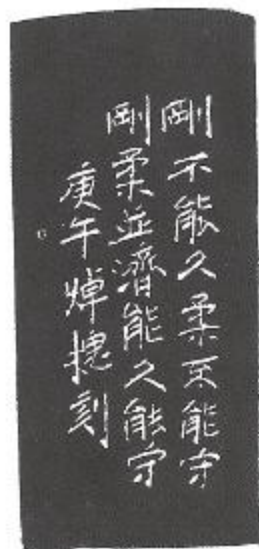 剛不能久柔不能守
剛柔並濟能久能守
庚午焯捷刻